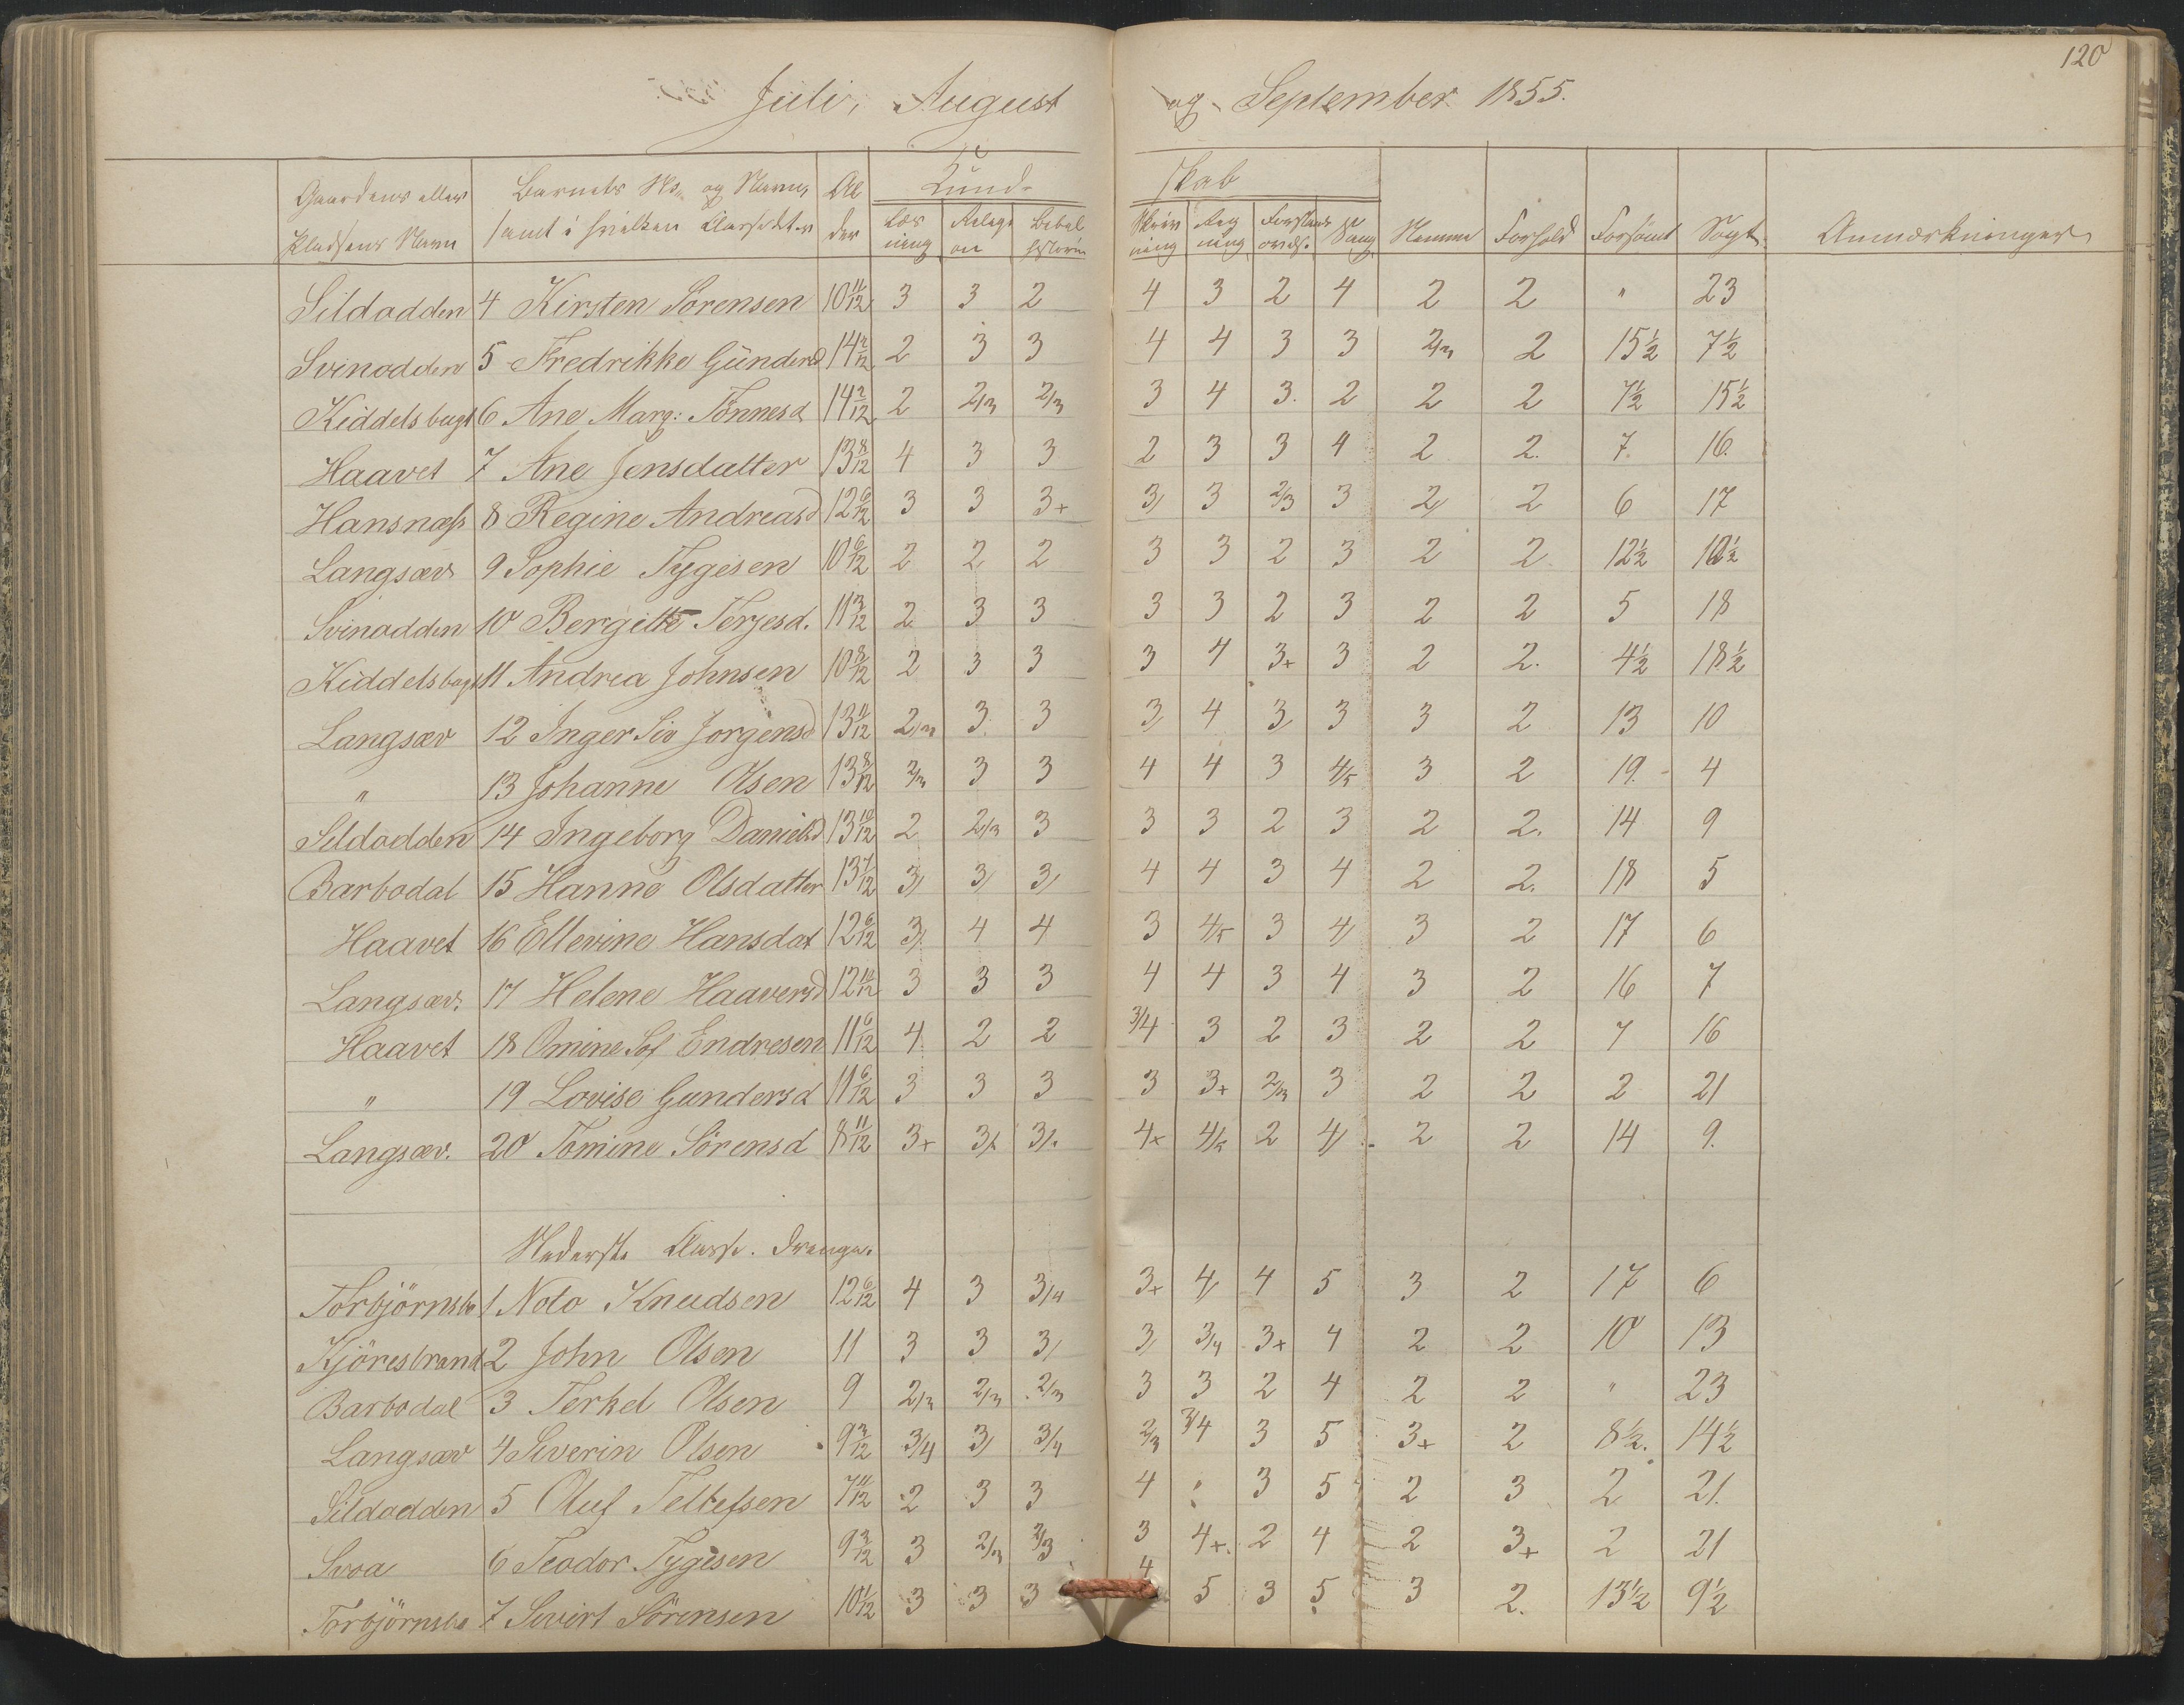 120
Juli, August og September 1855.
Gaardens eller Pladsens Navn | Barnets No. og Navn, samt i hvilken Classe det er | Alder | Kundskab | Nemme | Forhold | Forsømt | Søgt | Anmærkninger
Læsning | Religion | Bibelhistorie | Skrivning | Regning | Forstandsøvels. | Sang
Sildodden 4 Kirsten Sörensen 10 11/12 3 3 2 4 3 2 4 2 2 " 23
Svinodden 5 Fredrikke Gundersd 14 2/12 2 3 3 4 4 3 3 2/3 2 15½ 7½
Kiddelsbugt 6 Ane Marg: Tönnesd 14 2/12 2 2/3 2/3 3 4 3. 2 2 2 7½ 15½
Haavet 7 Ane Jensdatter 13 8/12 4 3 3 2 3 3 4 2 2. 7. 16.
Hansnæss 8 Regine Andreasd 12 6/12 3 3 3+ 3/ 3 2/3 3 2/ 2 6 17
Langsæv 9 Sophie Tygesen 10 6/12 2 2 2 3 3 2 3 2 2. 12½ 10½
Svinodden 10 Bergitte Terjesd. 11 3/12 2 3 3 3 3 2 3 2 2 5 18
Kiddelsbugt 11 Andrea Johnsen 10 8/12 2 3 3 3 4 3+ 3 2 2. 4½ 18½
Langsæv 12 Inger Siv Jorgensd 13 11/12 2/3 3 3 3/ 4 3/ 3 3 2 13 10
" 13 Johanne Olsen 13 8/12 2/3 3 3 4 4 3 4/5 3 2 19. 4
Sildodden 14 Ingeborg Danielsd 13 10/12 2 2/3 3 3 3 2 3 2 2. 14 9
Barbodal 15 Hanne Olsdatter 13 7/12 3/ 3/ 3/ 4 4 3 4 2 2. 18 5
Haavet 16 Ellevine Hansdat 12 6/12 3/. 4 4 3 4/5 3 4/ 3 2 17 6
Langsæv. 17 Helene Haaversd 12 11/12 3 3 3 4 4 3 4 3 2 16 7
Haavet 18 Omine Sof Endresen 11 6/12 4 2 2 3/4 3 2 3 2 2 7 16
" 19 Lovise Gundersd 11 6/12 3 3 3 3 3+ 2/3 3 2 2 2 21
Langsæv. 20 Tomine Sörensd 8 11/12 3+ 3/. 3/. 4+ 4/5 2 4/ 2 2 14 9.
Nederste Classe. Drenge.
Torbjörnsbo 1 Noto Knudsen 12 6/12 4 3 3/4 3+ 4/ 4 5 3 2 17 6
Kjöresbrand 2 John Olsen 11 3 3 3/ 3/ 3/4 3+ 4 2 2 10 13
Barbodal 3 Terkel Olsen 9 2/3 2/3 2/3 3 3 2 4 2 2 " 23
Langsæv 4 Severin Olsen 9 3/12 3/4 3/ 3/4 2/3 3/4 3 5 3+ 2 8½. 14½
Sildodden 5 Oluf Tellefsen 7 11/12 2 3 3 4 " 3 5 2 3 2 21.
Svoa 6 Teodor Tygesen 9 3/12 3 2/3 2/3 3 4+. 2 4 2 3+ 2 21
Torbjörnsbo 7 Sivert Sörensen 10 1/12 3 3 3 4 5 3 5 3 2. 13½ 9½